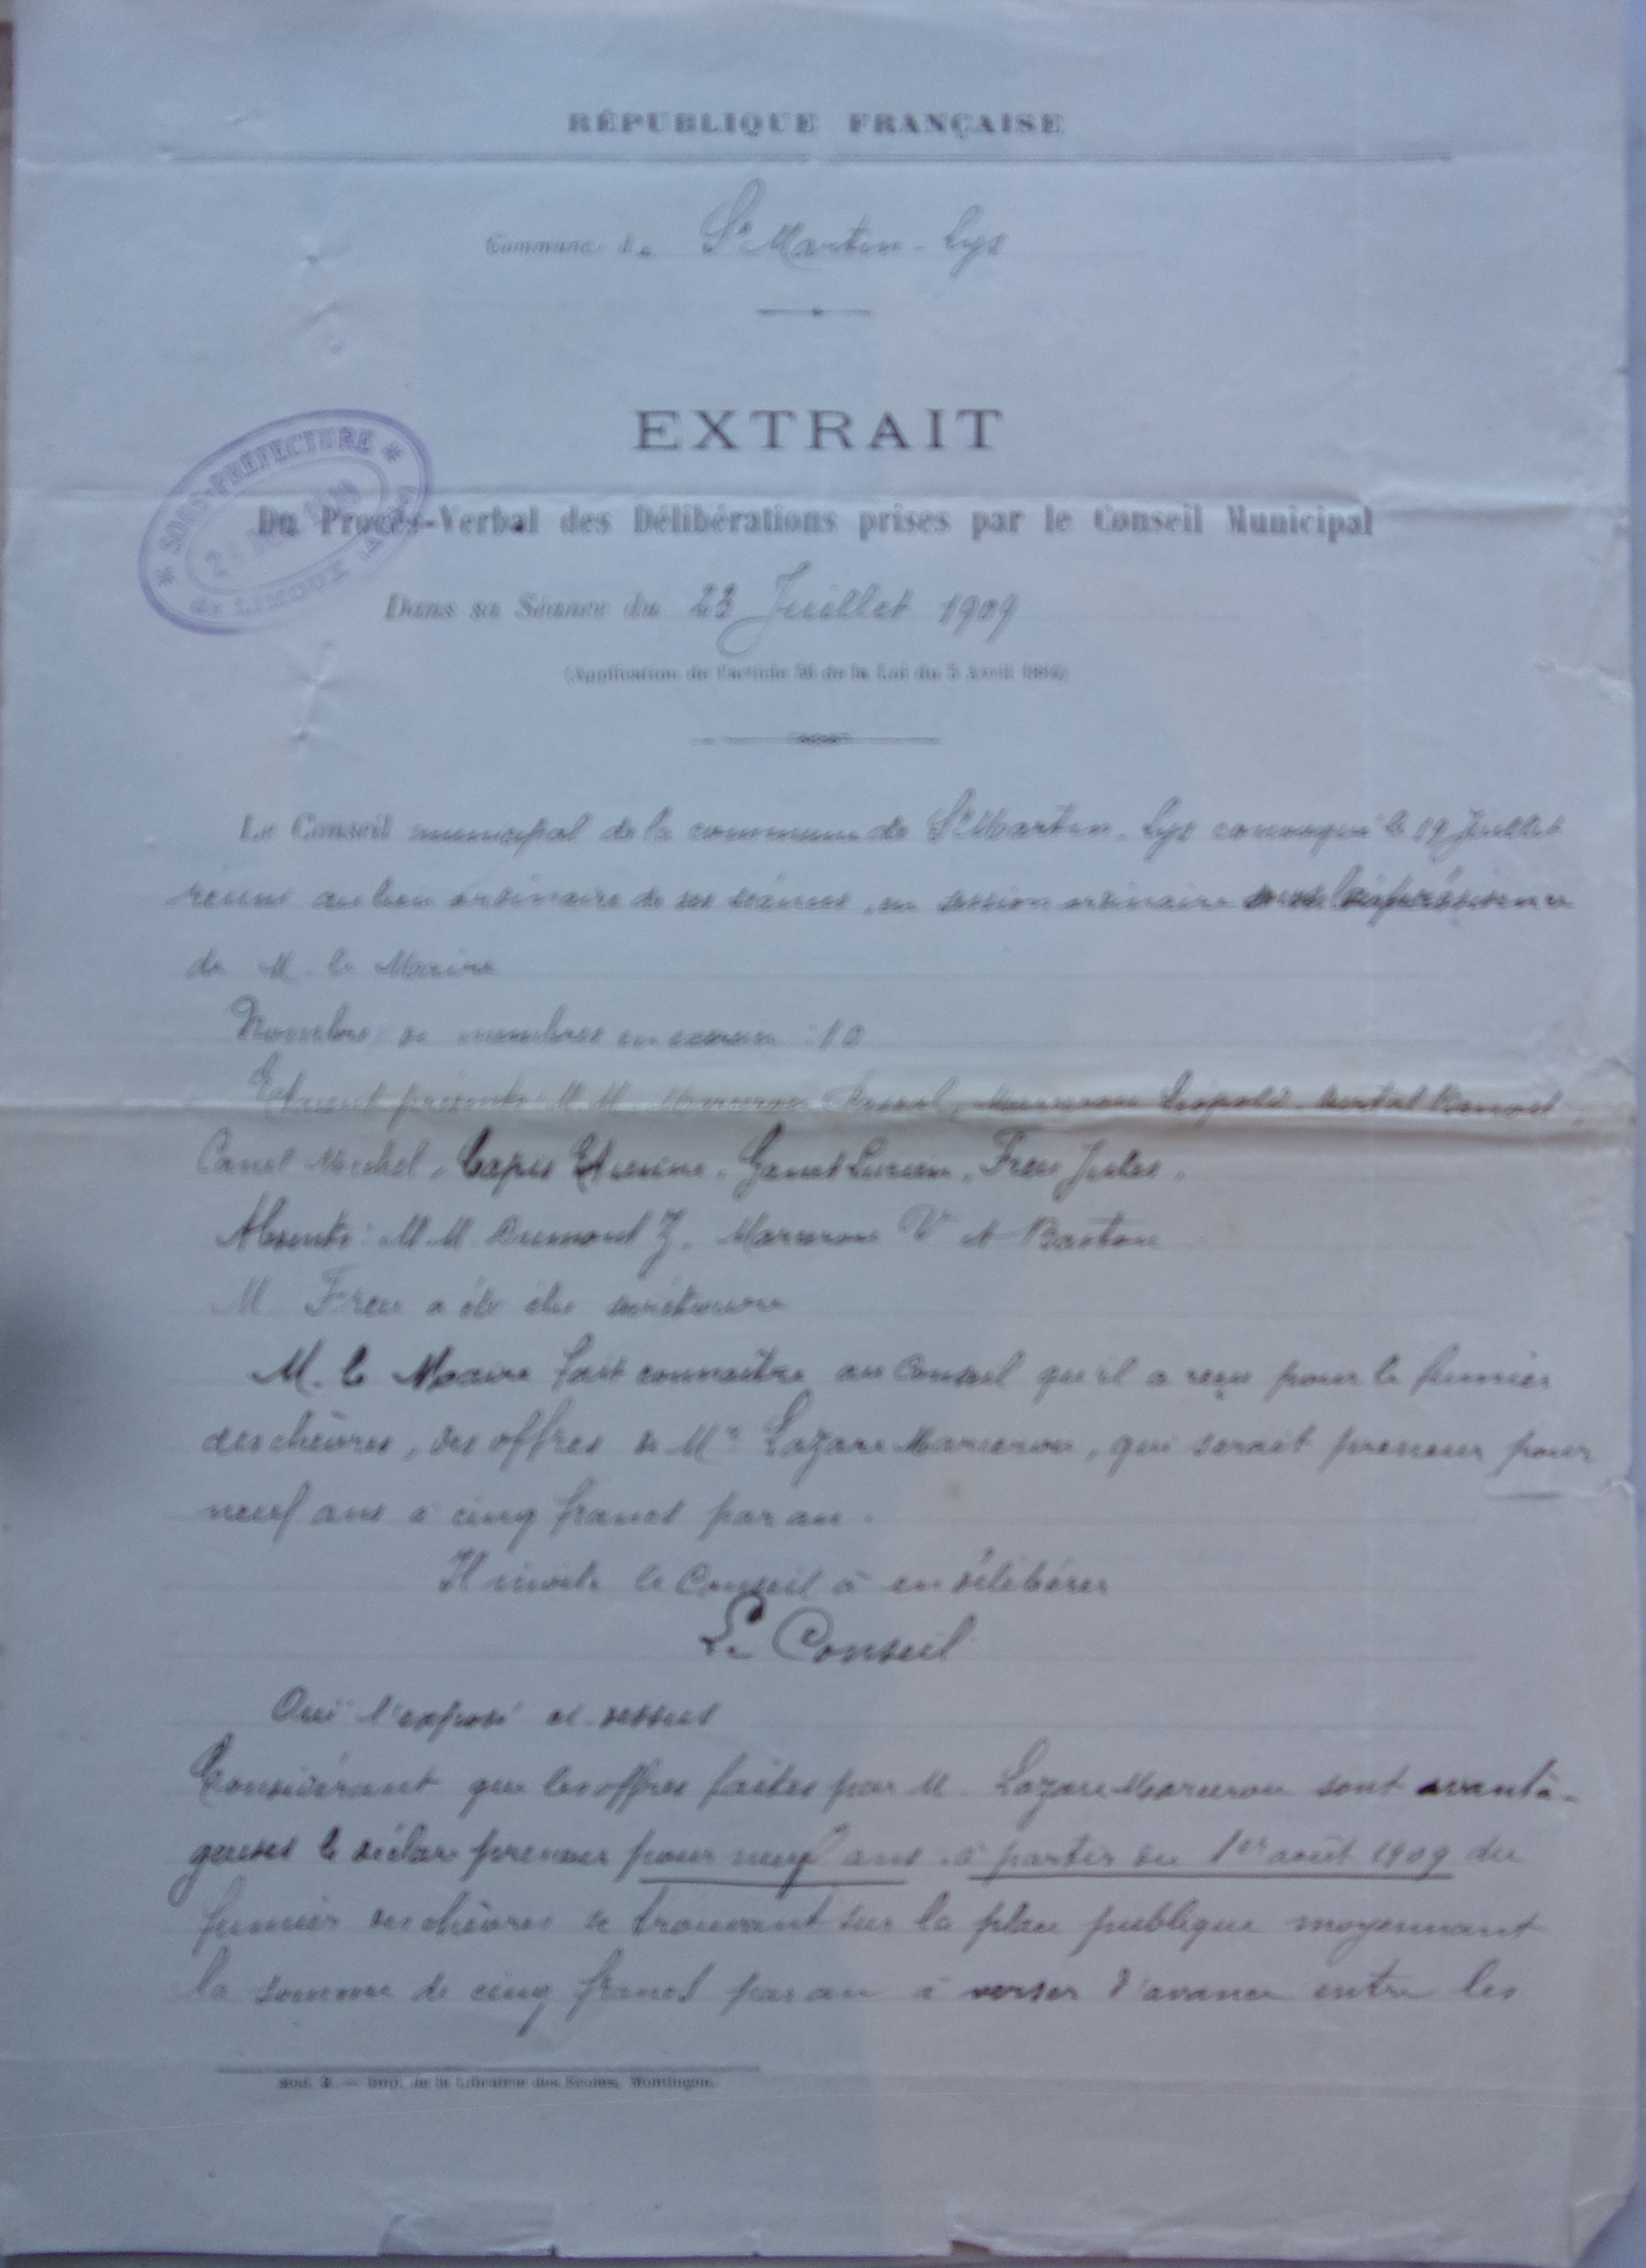 RÉPUBLIQUE FRANÇAISE
Commune de St Martin-Lys
EXTRAIT
SOUS-PRÉFECTURE
de LIMOUX
Du Procès-Verbal des Délibérations prises par le Conseil Municipal
Dans sa Séance du 23 Juillet 1909
(Application de l'article 56 de la Loi du 5 Avril 1884)
Le Conseil municipal de la commune de St Martin-Lys convoqué le 19 Juillet
réuni au lieu ordinaire de ses séances, en session ordinaire sous la présidence
de M. le Maire
Nombre de membres en exercice : 10
Etaient présents : M.M. Marcerou Léopold
Canel Michel, Capis Etienne, Lucien, Freu Jules.
Absents : M.M. Dumont J, Marcerou V et
M. Freu a été élu secrétaire
M. le Maire fait connaître au Conseil qu'il a reçu pour le fumier
des chèvres, des offres de Mr Lazare Marcerou, qui serait preneur pour
neuf ans à cinq francs par an.
Il invite le Conseil à en délibérer
Le Conseil
Ouï l'exposé ci-dessus
Considérant que les offres faites par M. Lazare Marcerou sont avanta-
geuses le déclare preneur pour neuf ans à partir du 1er août 1909 du
fumier des chèvres se trouvant sur la place publique moyennant
la somme de cinq francs par an à verser d'avance entre les
Imp. de la Librairie des Ecoles, Montluçon.